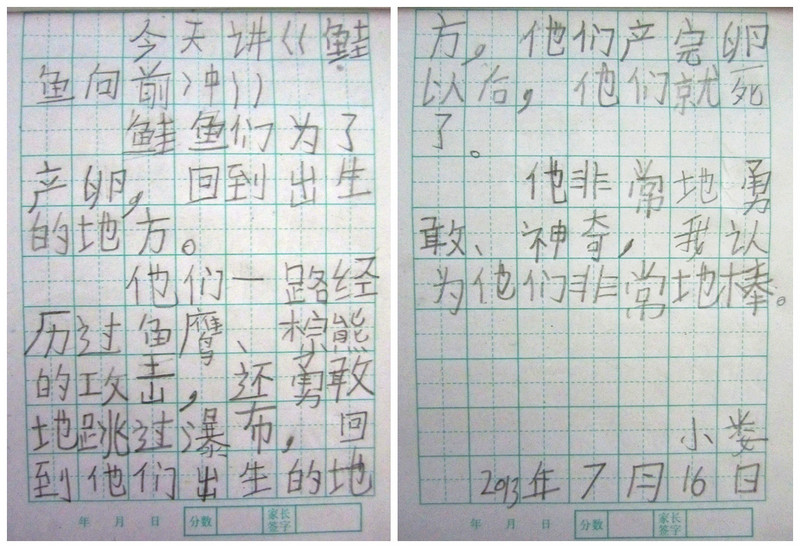 今天讲《鲑
鱼向前冲》
鲑鱼们为了
产卵，回到出生
的地方。
他们一路经
历过鱼鹰、棕熊
的攻击，还勇敢
地跳过瀑布，回
到他们出生的地
年 月 日 分数 家长签字
方，他们产完卵
以后，他们就死
了。
他非常地勇
敢、神奇，我认
为他们非常地棒。
小娄
2013年7月16日
年 月 日 分数 家长签字